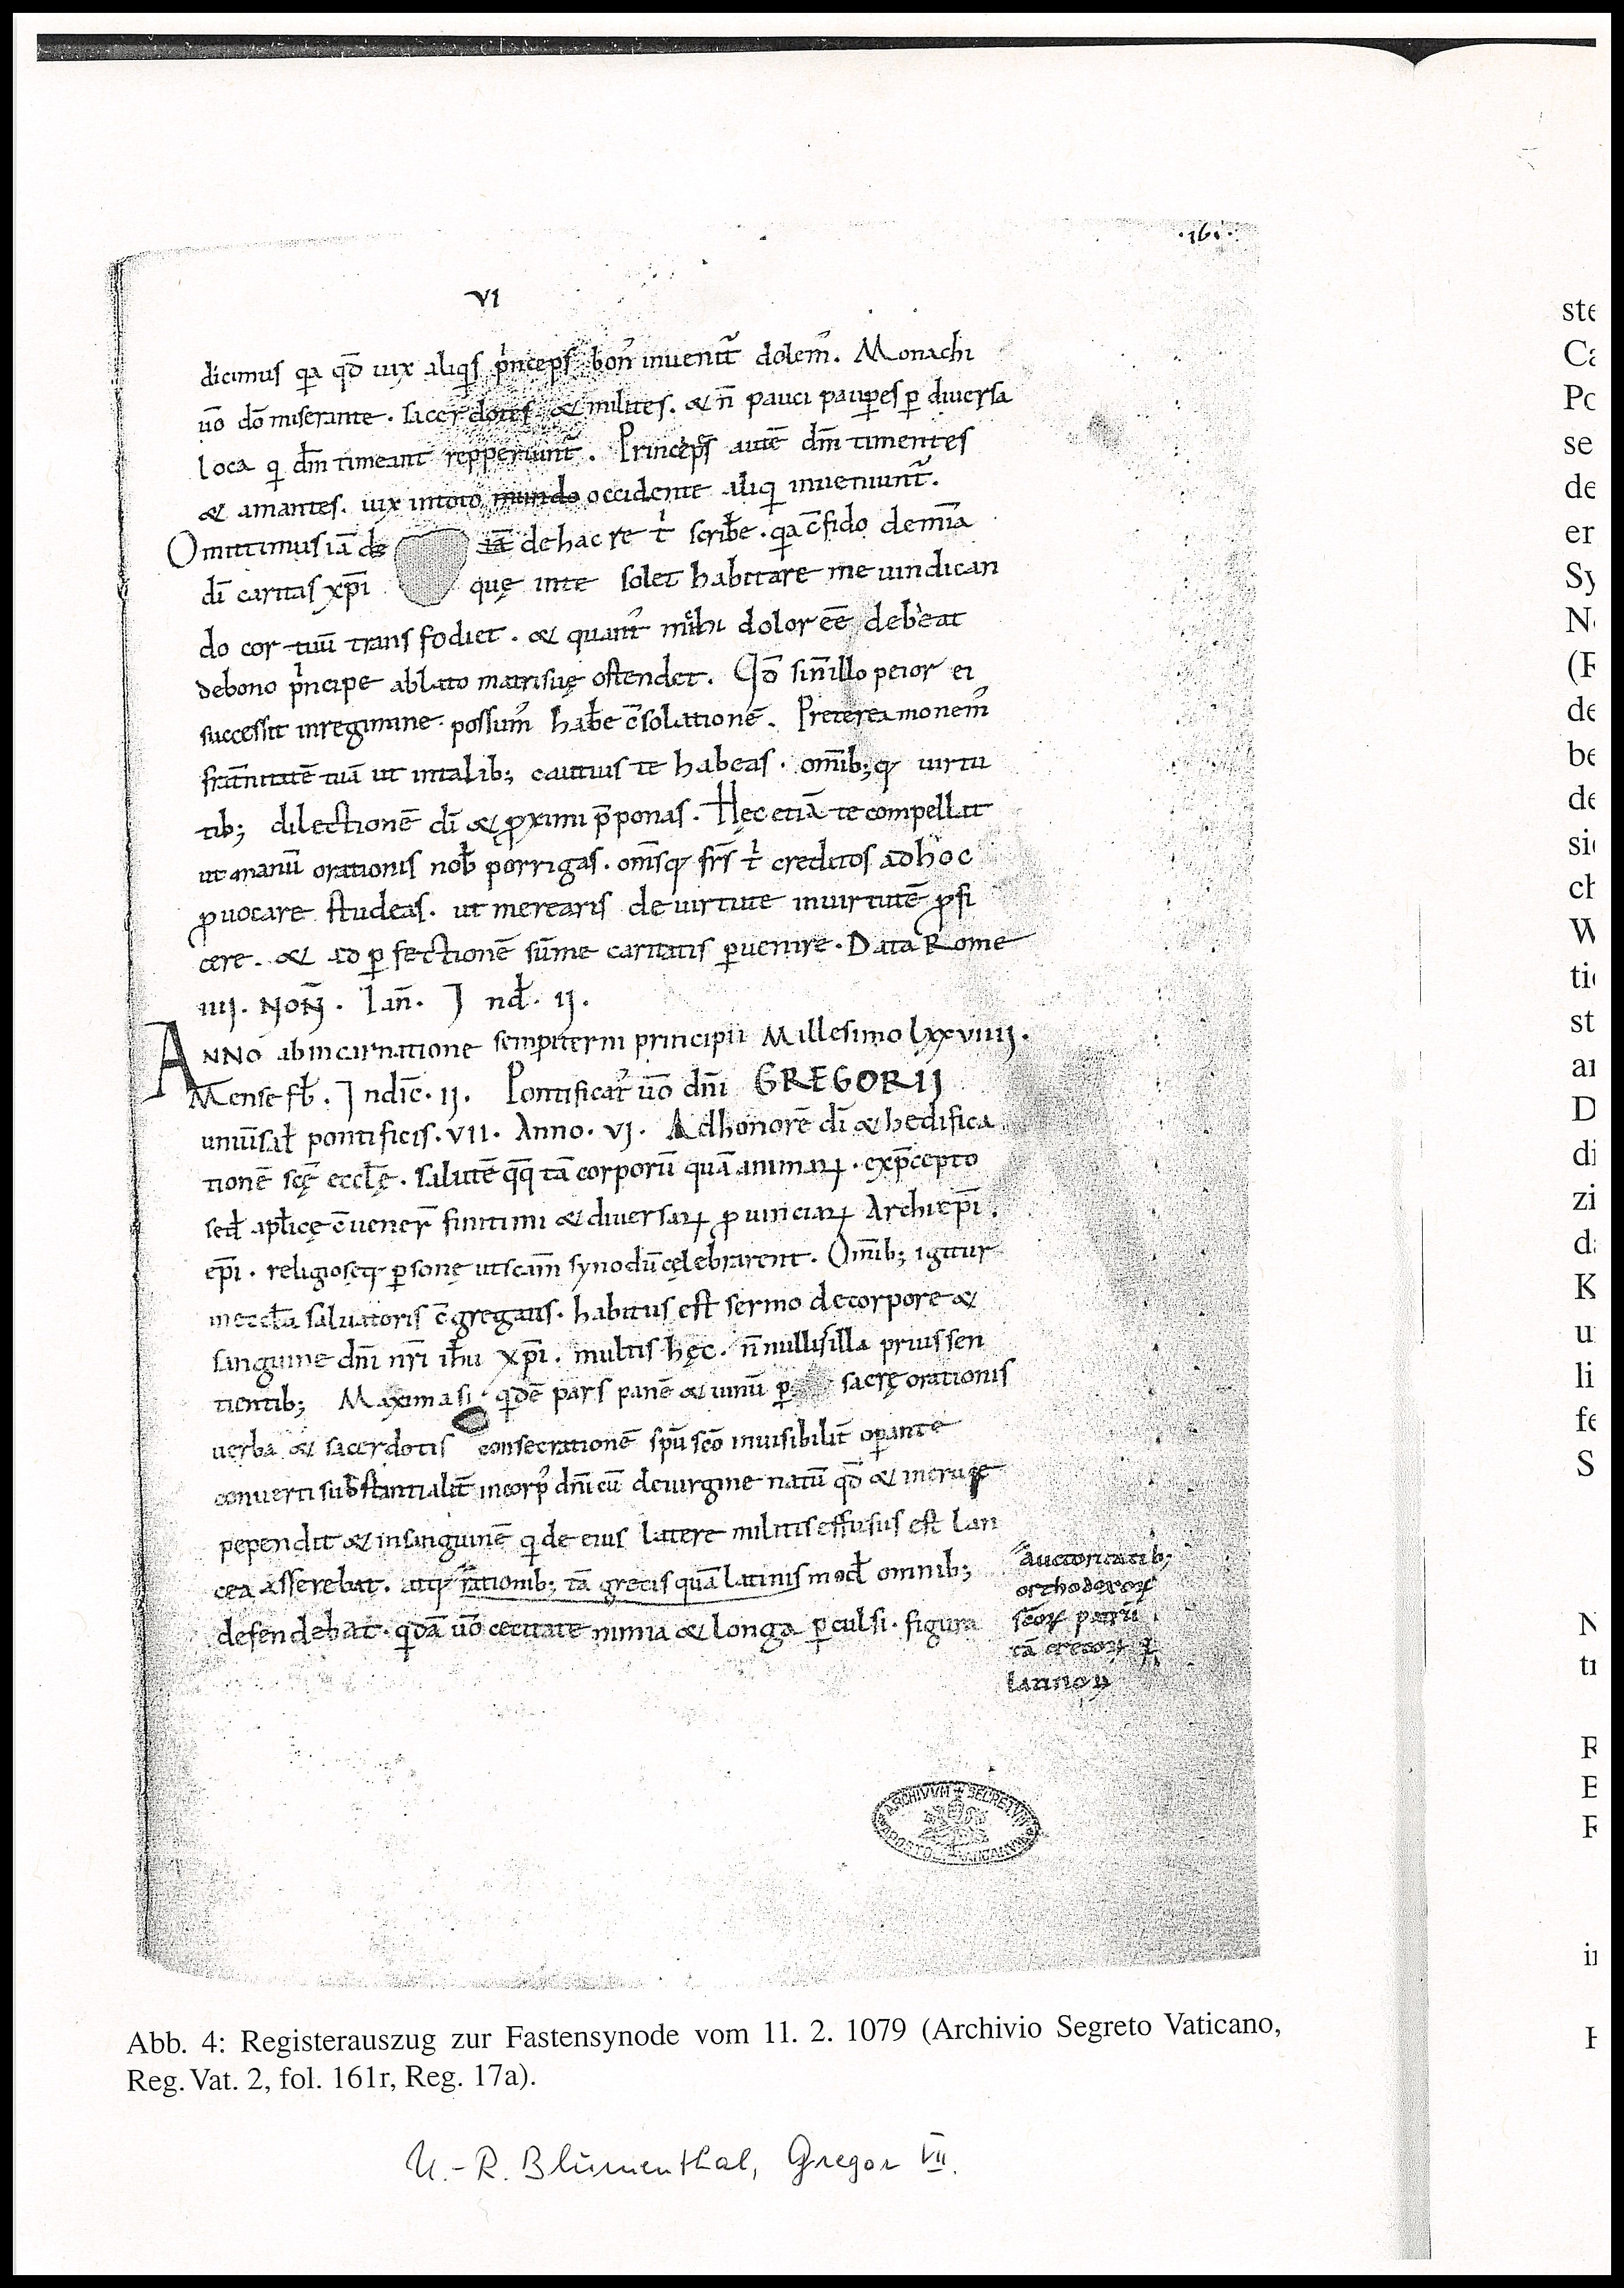 ·161·
VI
dicimus qa qđ uix aliqs pⁱnceps bon᾽ inuenit᷑ dolem᾽. Monachi
uō dō miserante. sacerdotes & milites. & n̄ pauci paup̱es p̱ diuersa
loca q dm̄ timeant repperiunt᷑. Princeps autē dm̄ timentes
& amantes. uix intoto mundo occidente aliq inueniunt᷑.
Omittimus iā de iā dehac re tⁱ scribe. qa c̄fido demīa
dī caritas xp̄i quę inte solet habitare me uindican
do cor tuū transfodiet. & quant᾽ mihi dolor eē debeat
debono pⁱncipe ablato matri suę ostendet. Qō sin̄ illo peior ei
successit inregimine. possum᾽ hab̄e c̄solationē. Preterea monem᾽
frat̄nitatē tuā ut intalib; cautius te habeas. omīb;q; uirtu
tib; dilectionē dī & ꝓximi p̄ponas. Hęc etiā te compellat
ut manū orationis nob̄ porrigas. om̄sq; fr̄s tⁱ creditos adhoc
ꝓuocare studeas. ut merearis deuirtute inuirtutē ꝓfi
cere. & ad ꝑfectionē sūme caritatis ꝑuenire. Data Rome
iiij. NON̄. Ian̄. Ind̄. ij.
ANNO abincarnatione sempiterni principii Millesimo lxxviiij.
Mense fb̄. Indic̄. ij. Pontificat᾽ uō dn̄i GREGORIJ
uniūsal̄ pontificis. vii. Anno. vj. Adhonorē dī & hedifica
tionē scę̄ eccl̄ę. salutē qq̄ tā corporū quā animaꝝ. exp̄cepto
sed̄ apl̄icę c̄uener̄ finitimi & diuersaꝝ ꝓuinciaꝝ Archiep̄i.
ep̄i. religioseq; ꝑsonę utscām synodū cęlebrarent. Om̄ib; igitur
ineccl̄a saluatoris c̄gregatis. habitus est sermo decorpore &
sanguine dn̄i nr̄i ih̄u xp̄i. multis hęc. n̄nullis illa prius sen
tientib; Maxima siqdē pars panē & uinū ꝑ sacrę orationis
uerba & sacerdotis consecrationē sp̄u scō inuisibilit̄ oꝑante
conuerti sub̄stantialit̄ incorp᾽ dn̄icū deuirgine natū qđ & incruce
pependit & insanguinē q de eius latere militis effusus est lan
cea asserebat. atq; rationib; tā grecis quā latinis mod̄ omnib;
defendebat. qdā uō cecitate nimia & longa ꝑculsi. figura
auctoritatib;
orthodoxoꝝ
scōꝝ patrū
tā grecoꝝ q̄
latinoꝝ
ARCHIVVM SECRETVM
Abb. 4: Registerauszug zur Fastensynode vom 11. 2. 1079 (Archivio Segreto Vaticano,
Reg. Vat. 2, fol. 161r, Reg. 17a).
U.-R. Blumenthal, Gregor VII.